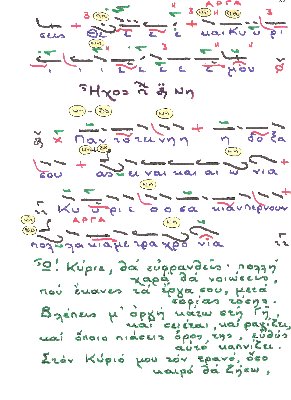 ΑΡΓΑ
σεις Θε ε ε ε και Κυ υ ρι
ι ι ε ε ε ε μου
Ἦχος Νη
Παντοτεινη η η δο ξα
σου ας ειναι και αι ω νια
Κυ υ ριε ο ο σα κι αν περνουν
ΑΡΓΑ
πολλα και αμετρα χρο νια
Ὤ! Κύριε, θά εὐφρανθεῖς. πολλή
χαρά θά νοιώσεις,
πού ἔκανες τά ἔργα σου, μετά
σοφίας τόσης.
Βλέπεις μ' ὀργή κάτω στή Γῆ,
καί σείεται, καί ραγίζει,
καί ὅποιο πιάσεις ὄρος της, εὐθύς
αὐτό καπνίζει.
Στόν Κύριό μου τόν τρανό, ὅσο
καιρό θά ζήσω,